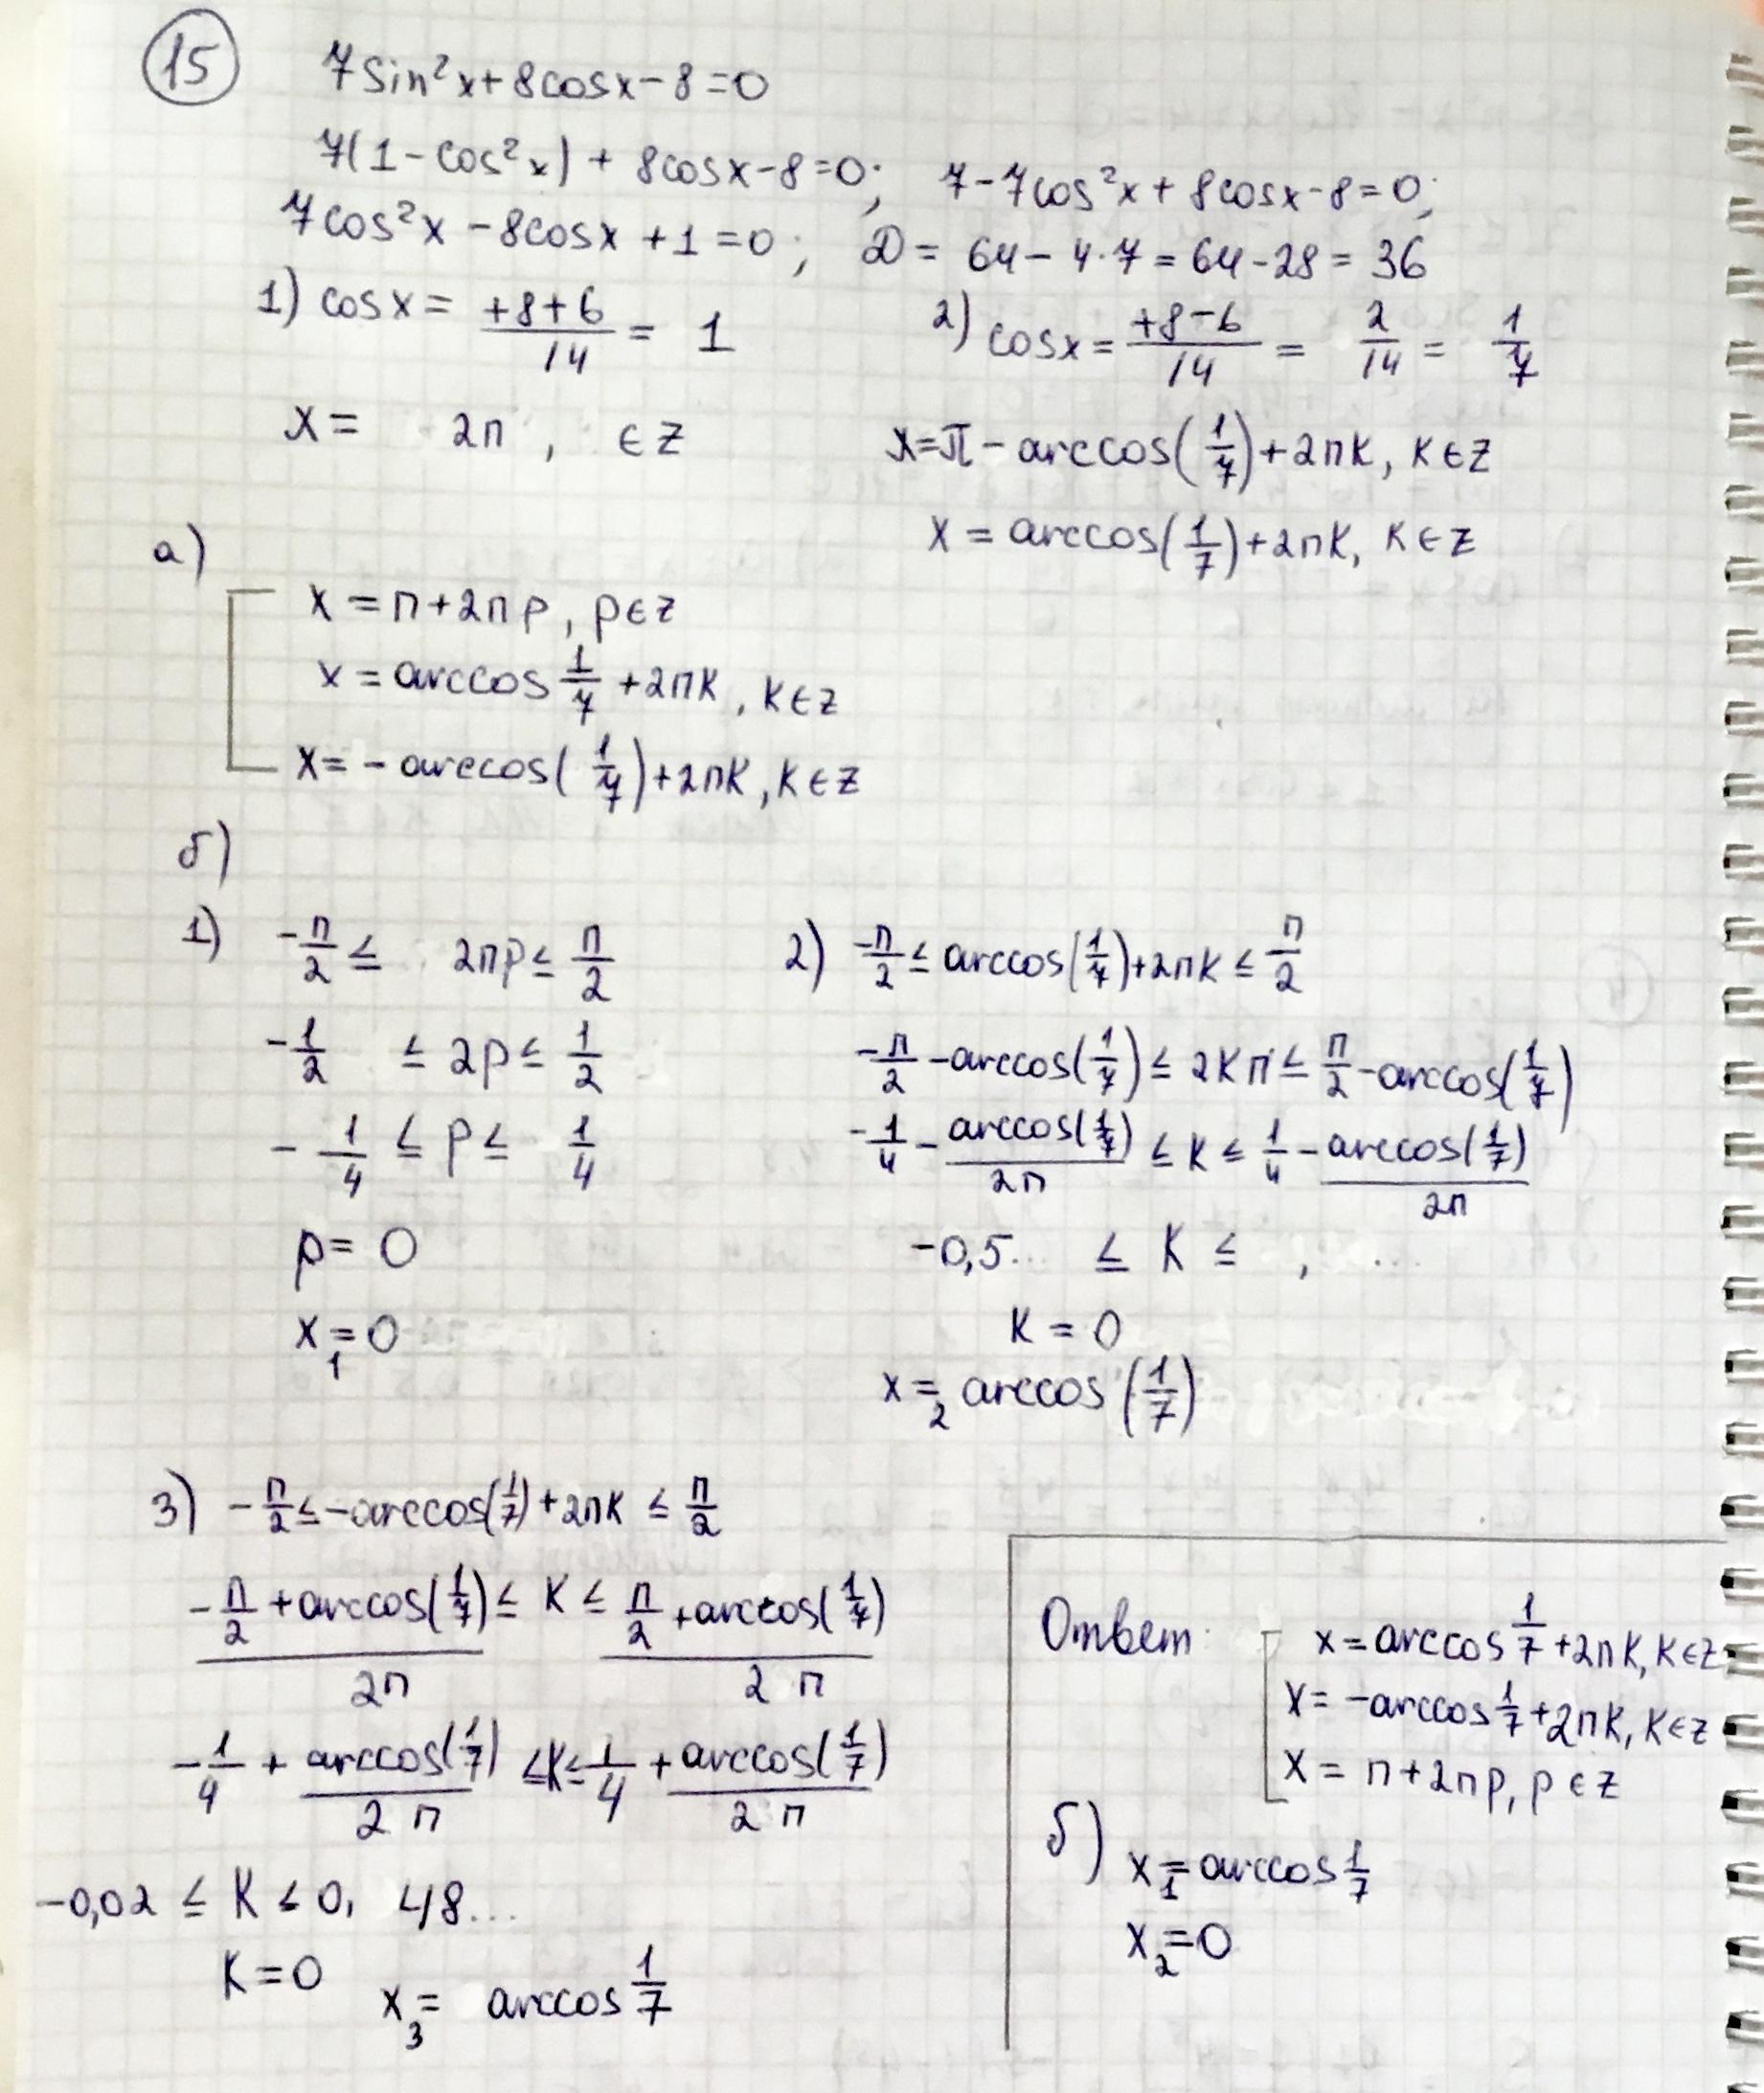 15
7sin²x+8cosx-8=0
7(1-cos²x)+8cosx-8=0; 7-7cos²x+8cosx-8=0;
7cos²x-8cosx+1=0; D=64-4·7=64-28=36
1) cosx=(+8+6)/14=1 2) cosx=(+8-6)/14=2/14=1/7
x= 2п , ∈Z x=π-arccos(1/7)+2пk, k∈Z
x=arccos(1/7)+2пk, k∈Z
а)
x=п+2пp, p∈Z
x=arccos 1/7+2пk, k∈Z
x=-arccos(1/7)+2пk, k∈Z
б)
1) -п/2≤ 2пp≤п/2 2) -п/2≤arccos(1/7)+2пk≤п/2
-1/2 ≤2p≤1/2 -п/2-arccos(1/7)≤2kп≤п/2-arccos(1/7)
-1/4≤p≤ 1/4 -1/4-arccos(1/7)/2п≤k≤1/4-arccos(1/7)/2п
p=0 -0,5... ≤k≤ , ...
x₁=0 k=0
x₂=arccos(1/7)
3) -п/2≤-arccos(1/7)+2пk≤п/2
(-п/2+arccos(1/7))/2п≤k≤(п/2+arccos(1/7))/2п
-1/4+arccos(1/7)/2п≤k≤1/4+arccos(1/7)/2п
-0,02≤k≤0,48...
k=0 x₃= arccos 1/7
Ответ: x=arccos 1/7+2пk, k∈Z
x=-arccos 1/7+2пk, k∈Z
x=п+2пp, p∈Z
б) x₁=arccos 1/7
x₂=0